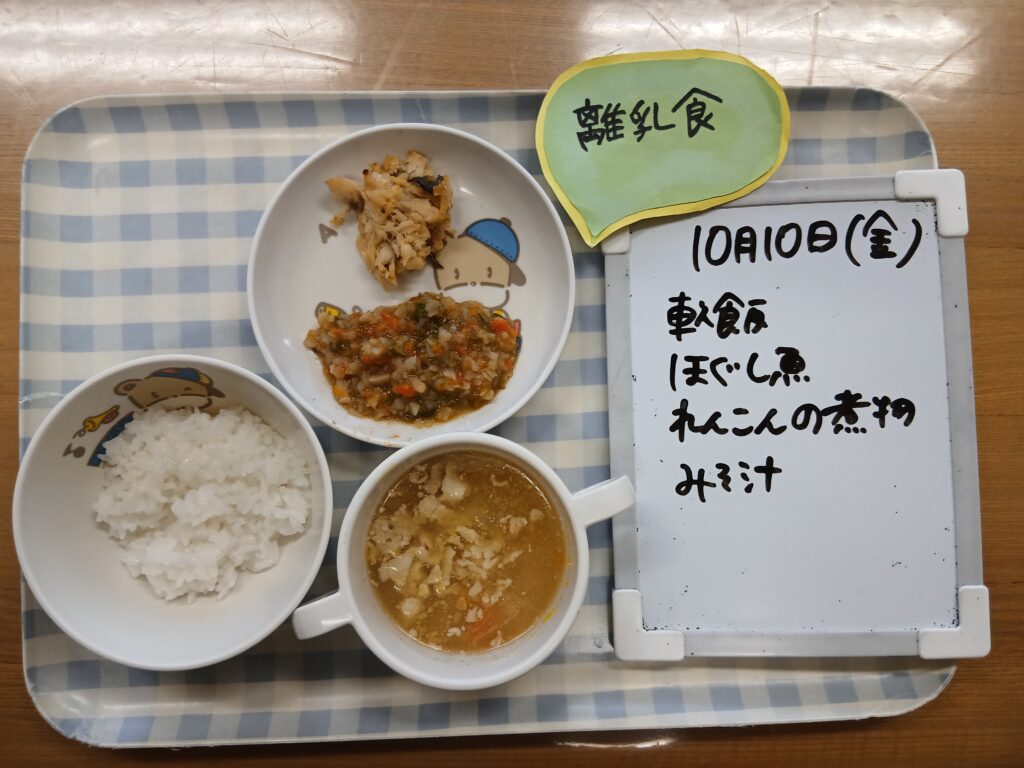 離乳食
10月10日(金)
軟飯
ほぐし魚
れんこんの煮物
みそ汁